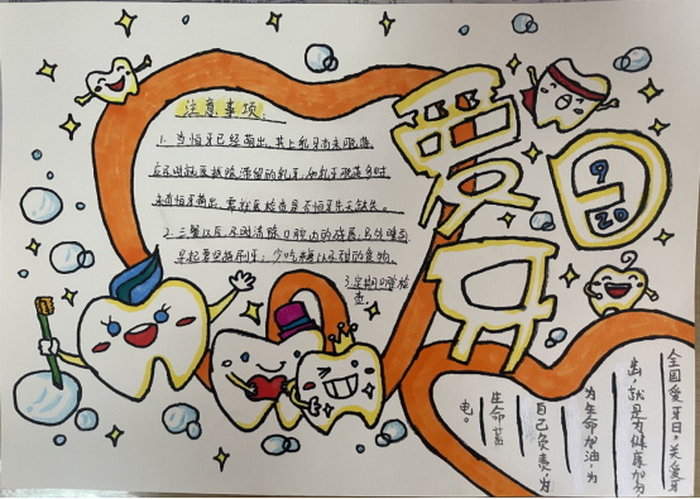 爱牙日
9
20
注意事项：
1. 当恒牙已经萌出，其上乳牙尚未脱落，
应尽快就医拔除滞留的乳牙，如乳牙脱落多时
未有恒牙萌出，需就医检查是否恒牙先天缺失。
2. 三餐以后，及时清除口腔内的残屑，
早起要坚持刷牙，少吃糖以及甜的食物。
3. 定期口腔检
查。
全国爱牙日，关爱牙
齿，就是为健康加分
为生命加油，为
自己负责，为
生命蓄
电。